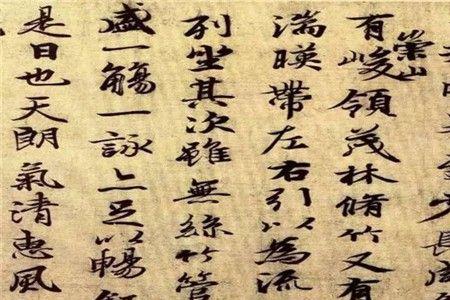 少長咸
有崇山峻領茂林脩竹又有
湍暎帶左右引以為流
列坐其次雖無絲竹管
盛一觴一詠亦足以暢
是日也天朗氣清惠風